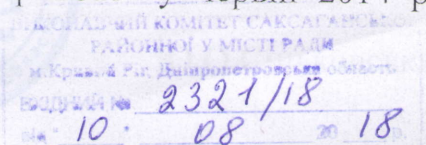 2014 р
ВИКОНАВЧИЙ КОМІТЕТ САКСАГАНСЬКО
РАЙОННОЇ У МІСТІ РАДИ
м.Кривий Ріг Дніпропетровська область
ВХІДНИЙ № 2321/18
від " 10 " 08 20 18 р.